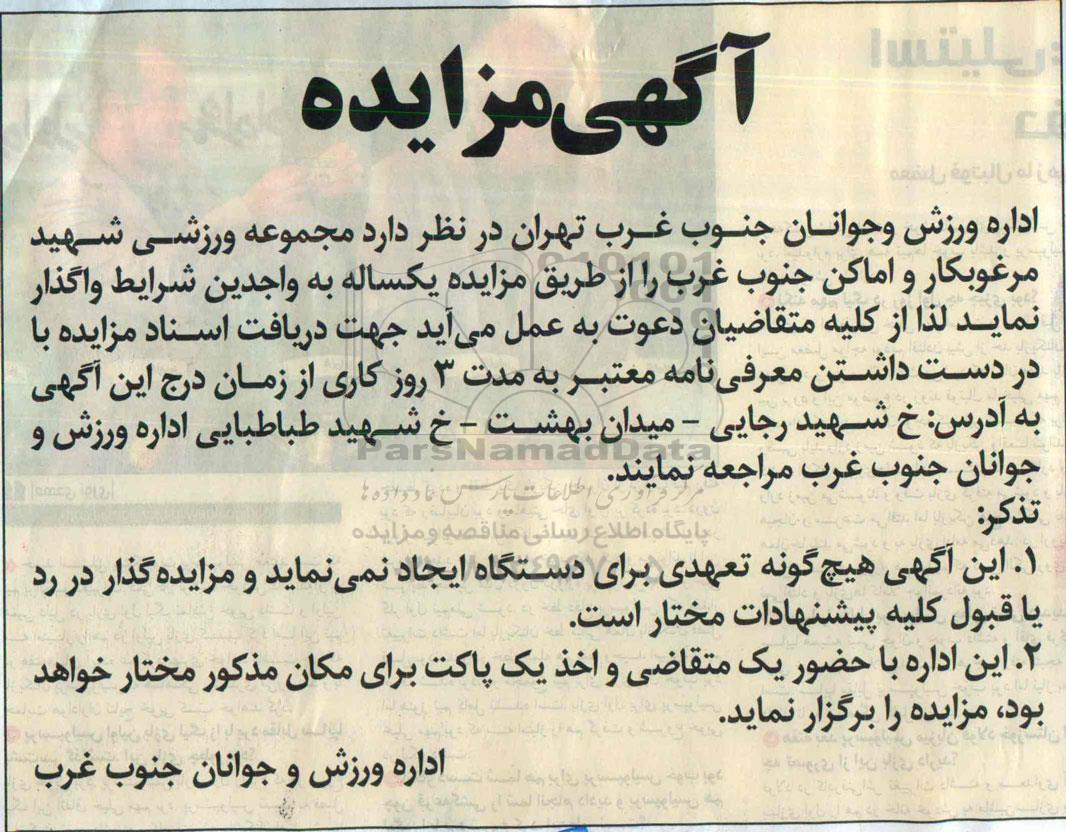 آگهی مزایده
اداره ورزش وجوانان جنوب غرب تهران در نظر دارد مجموعه ورزشی شهید
مرغوبکار و اماکن جنوب غرب را از طریق مزایده یکساله به واجدین شرایط واگذار
نماید لذا از کلیه متقاضیان دعوت به عمل می‌آید جهت دریافت اسناد مزایده با
در دست داشتن معرفی‌نامه معتبر به مدت ۳ روز کاری از زمان درج این آگهی
به آدرس: خ شهید رجایی - میدان بهشت - خ شهید طباطبایی اداره ورزش و
جوانان جنوب غرب مراجعه نمایند.
تذکر:
۱. این آگهی هیچ‌گونه تعهدی برای دستگاه ایجاد نمی‌نماید و مزایده‌گذار در رد
یا قبول کلیه پیشنهادات مختار است.
۲. این اداره با حضور یک متقاضی و اخذ یک پاکت برای مکان مذکور مختار خواهد
بود، مزایده را برگزار نماید.
اداره ورزش و جوانان جنوب غرب
ParsNamadData
پایگاه اطلاع رسانی مناقصه و مزایده